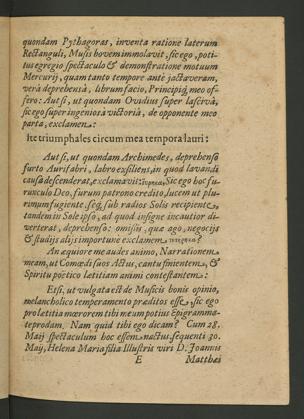 quondam Pythagoras, inventa ratione laterum
Rectanguli, Musis bovem immolavit, sic ego, poti-
tus egregio spectaculo & demonstratione motuum
Mercurij, quam tanto tempore ante jactaveram,
vera deprehensâ, librum facio, Principiq́ meo of-
fero: Aut si, ut quondam Ovidius super lascivâ,
sic ego super ingeniosâ victoriâ, de opponente meo
parta, exclamem:
Ite triumphales circum mea tempora lauri:
Aut si, ut quondam Archimedes, deprehenso
furto Aurifabri, labro exsiliens, in quod lavandi
causâ descenderat, exclamavit: Sic ego hoc fu-
runculo Deo, furum patrono credito, lucem ut plu-
rimum fugiente, seq́ sub radios Solis recipiente,
tandem in Sole ipso, ad quod insigne incautior di-
verterat, deprehenso: omissis, quæ ago, negocijs
& studijs alijs importune exclamem ?
An æquiore me audes animo, Narrationem
meam, ut Comœdi suos Actus, cantu finientem, &
Spiritu poëtico lætitiam animi contestantem:
Etsi, ut vulgata est de Musicis bonis opinio,
melancholico temperamento præditos esse, sic ego
pro lætitia mœrorem tibi meum potius Epigramma-
te prodam. Nam quid tibi ego dicam? Cum 28.
Maij spectaculum hoc essem nactus, sequenti 30.
Maij, Helena Maria filia Illustris viri D. Joannis
E Matthæi